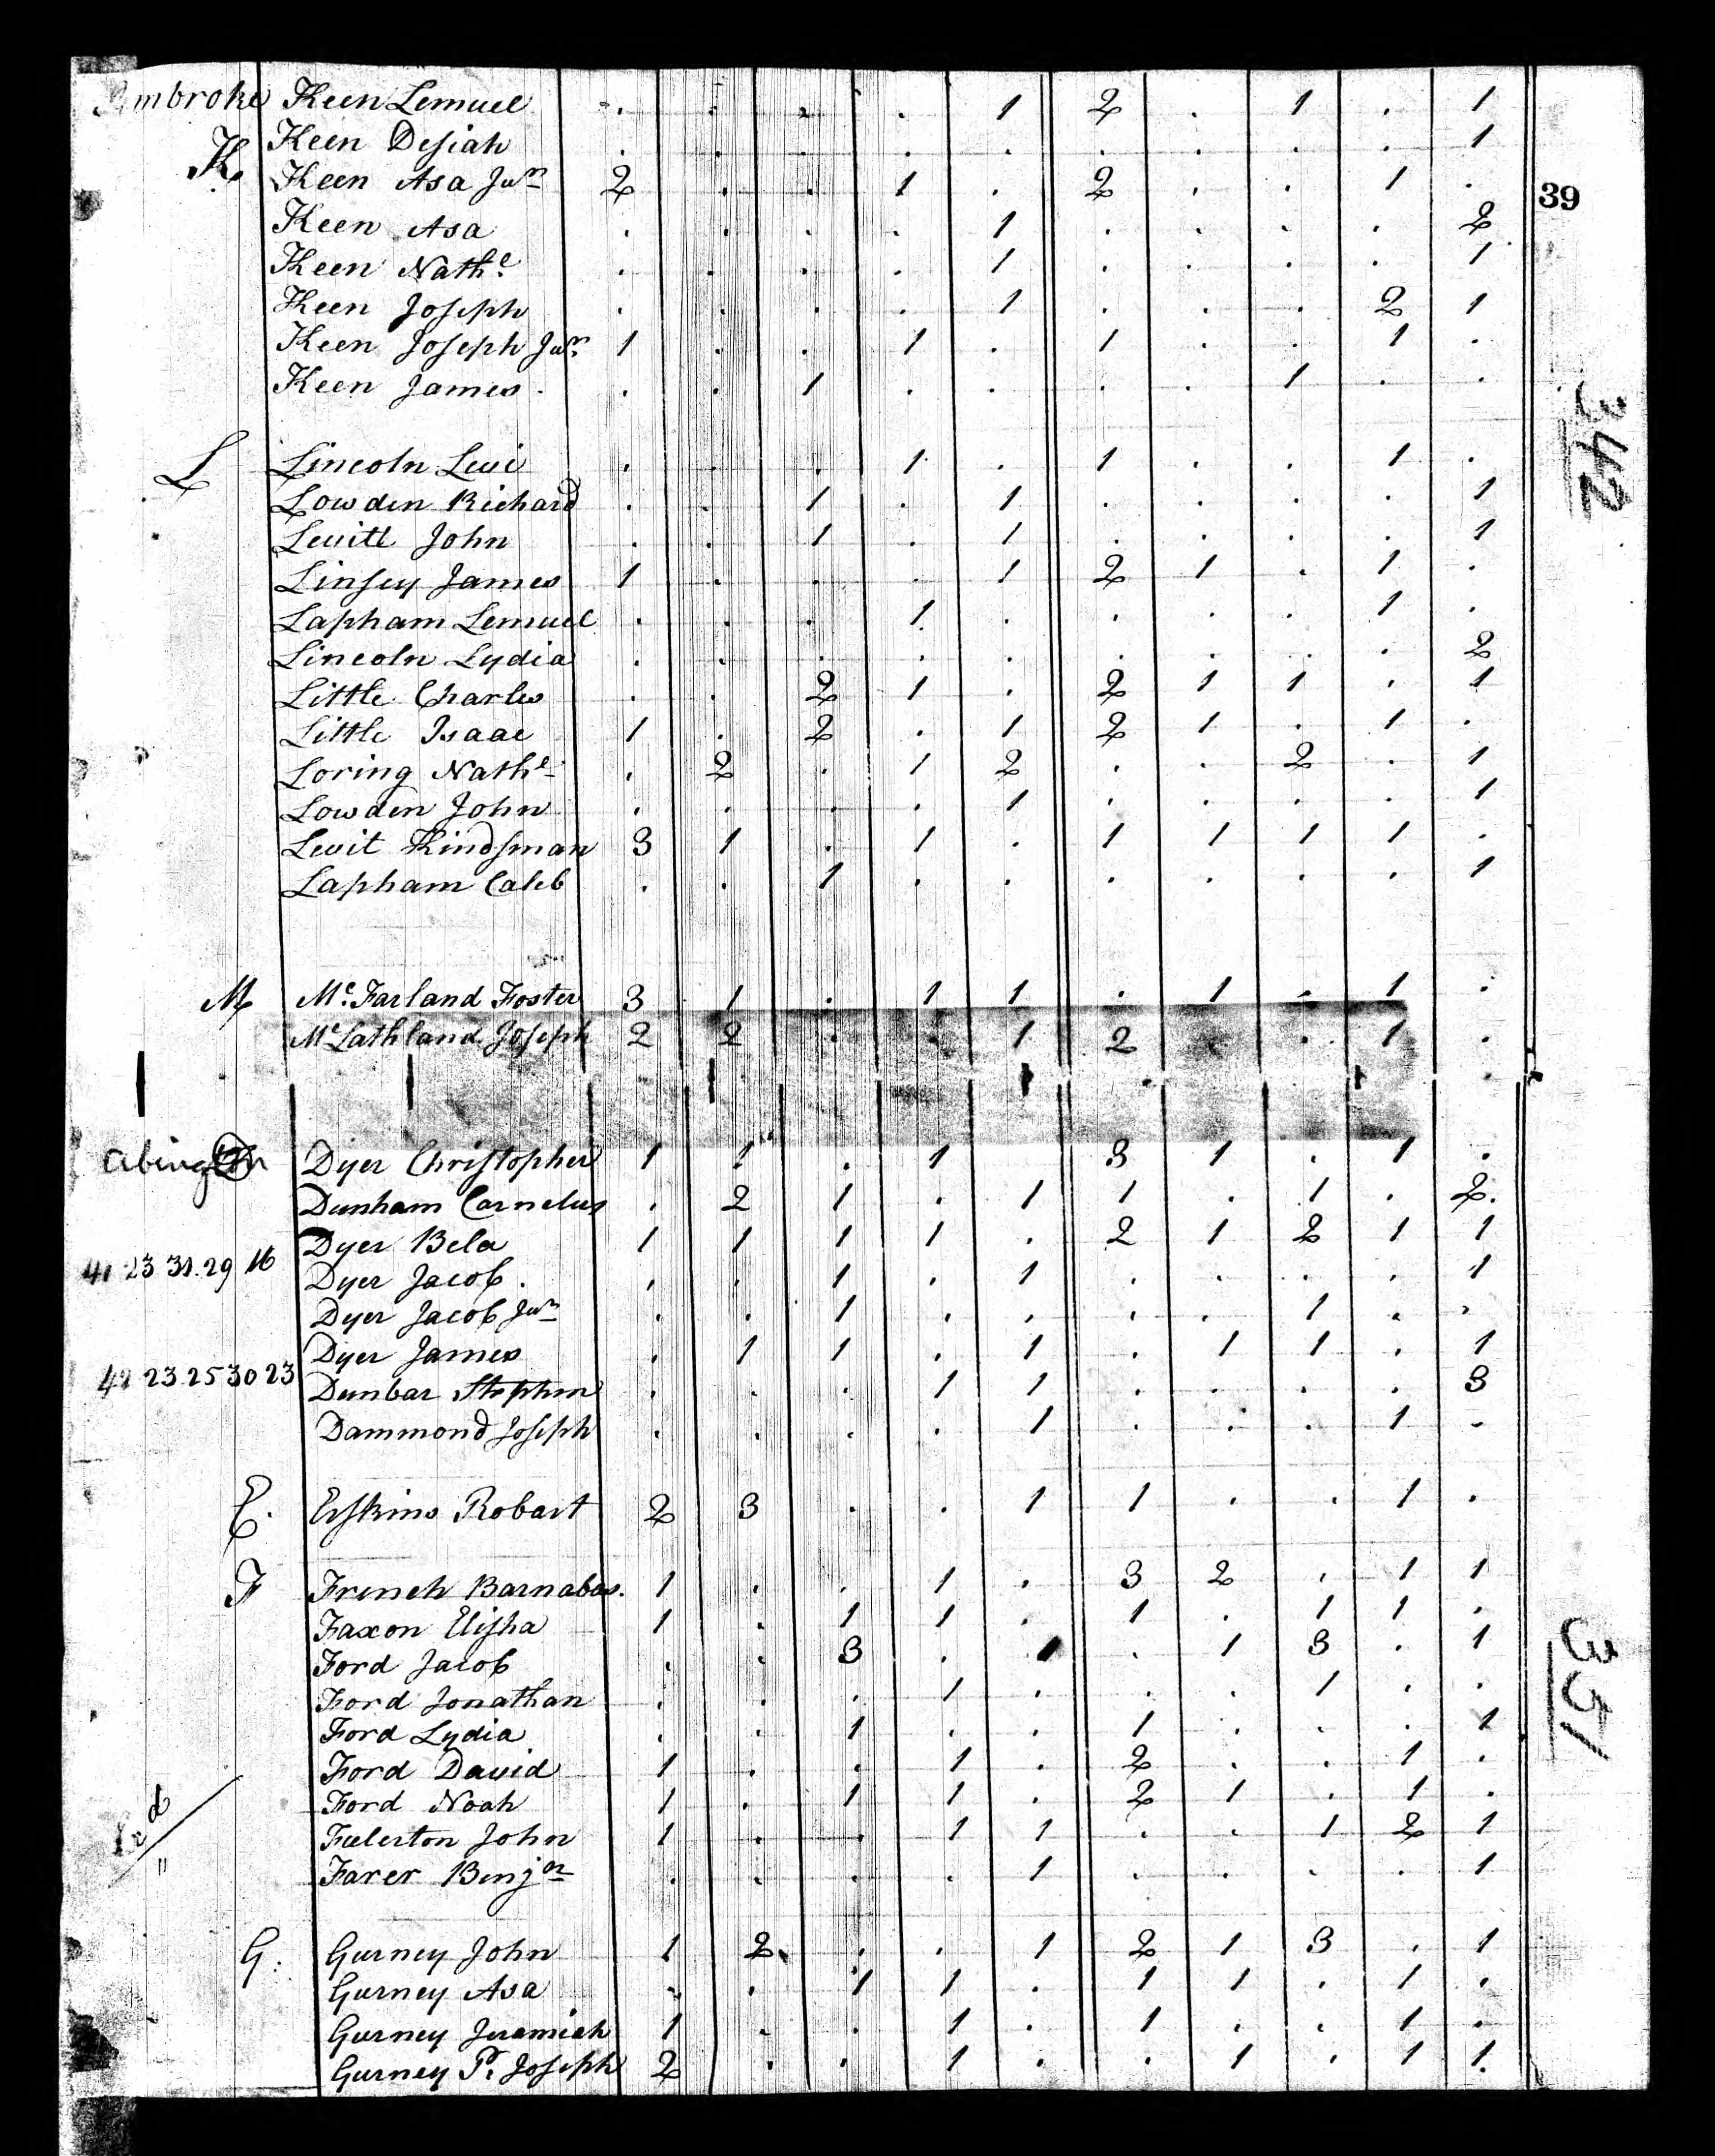 Pembroke Keen Lemuel . . . . 1 2 . 1 . 1
K. Keen Desiah . . . . . . . . . 1
Keen Asa Junr 2 . . 1 . 2 . . 1 .
39
Keen Asa . . . . 1 . . . . 2
Keen Nathl . . . . 1 . . . . 1
Keen Joseph . . . . 1 . . . 2 1
Keen Joseph Junr 1 . . 1 . 1 . . 1 .
Keen James . . . 1 . . . . 1 . .
342
L Lincoln Levi . . . 1 . 1 . . 1 .
Lowden Richard . . 1 . 1 . . . . 1
Levitt John . . 1 . 1 . . . . 1
Linsey James 1 . . . 1 2 1 . 1 .
Lapham Lemuel . . . 1 . . . . 1 .
Lincoln Lydia . . . . . . . . . 2
Little Charles . . 2 1 . 2 1 1 . 1
Little Isaac 1 . 2 . 1 2 1 . 1 .
Loring Nathl . 2 . 1 2 . . 2 . 1
Lowden John . . . . 1 . . . . 1
Levit Kindsman 3 1 . 1 . 1 1 1 1 .
Lapham Caleb . . 1 . . . . . . 1
M Mc. Farland Foster 3 1 . 1 1 . 1 . 1 .
Mc Lathland Joseph 2 2 . . 1 2 . . 1 .
Abington D Dyer Christopher 1 1 . 1 3 1 . 1 .
Dunham Cornelus . 2 1 . 1 1 . 1 . 2.
Dyer Bela 1 1 1 1 . 2 1 2 1 1
41 23 31. 29 16
Dyer Jacob . . . 1 . 1 . . . . 1
Dyer Jacob Junr . . 1 . . . . 1 . .
Dyer James . 1 1 . 1 . 1 1 . 1
42 23 25 30 23
Dunbar Stephen . . . 1 1 . . . . 3
Dammond Joseph . . . . 1 . . . 1 .
E. Erskins Robart 2 3 . . 1 1 . . 1 .
F French Barnabas. 1 . . 1 . 3 2 . 1 1
Faxon Elisha 1 . 1 1 . 1 . 1 1 .
Ford Jacob . . 3 . 1 . 1 3 . 1
351
Ford Jonathan . . . 1 . . . 1 . .
Ford Lydia . . 1 . . 1 . . . 1
Ford David 1 . . 1 . 2 . . 1 .
Ford Noah 1 . 1 1 . 2 1 . 1 .
Fulerton John 1 . . 1 1 . . 1 2 1
Farer Benjn . . . . 1 . . . . 1
G. Gurney John 1 2 . . 1 2 1 3 . 1
Gurney Asa . . 1 1 . 1 1 . 1 .
Gurney Jeramiah 1 . . 1 . 1 . . 1 .
Gurney P. Joseph 2 . . 1 . . 1 . 1 1